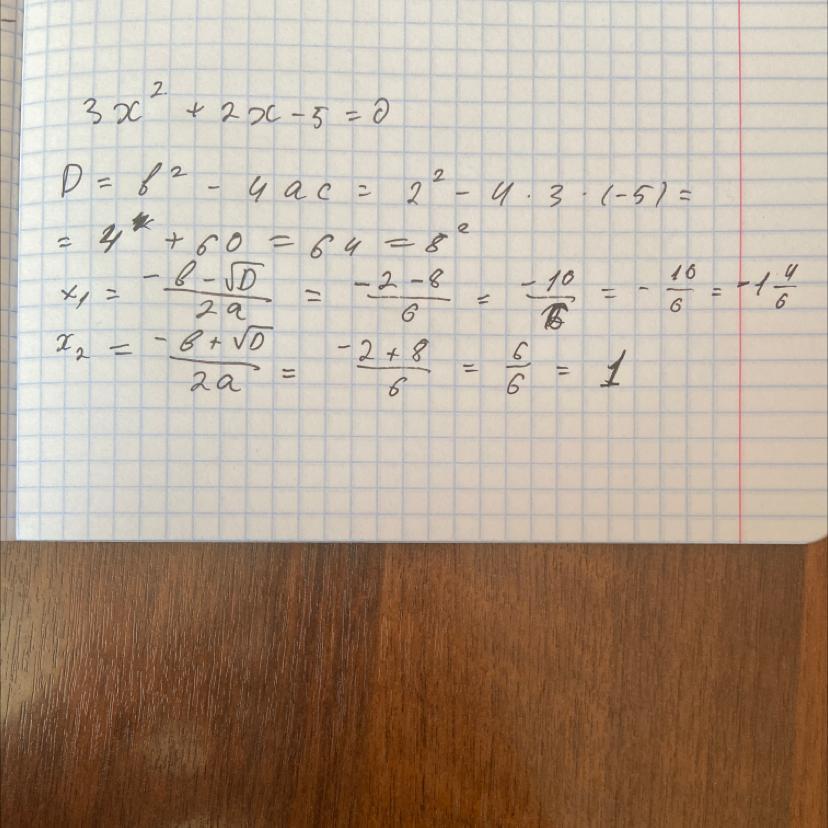 3x² + 2x - 5 = 0
D = b² - 4ac = 2² - 4 · 3 · (-5) =
= 4 + 60 = 64 = 8²
x₁ = (-b - √D)/(2a) = (-2 - 8)/6 = (-10)/6 = - 10/6 = -1 4/6
x₂ = (-b + √D)/(2a) = (-2 + 8)/6 = 6/6 = 1